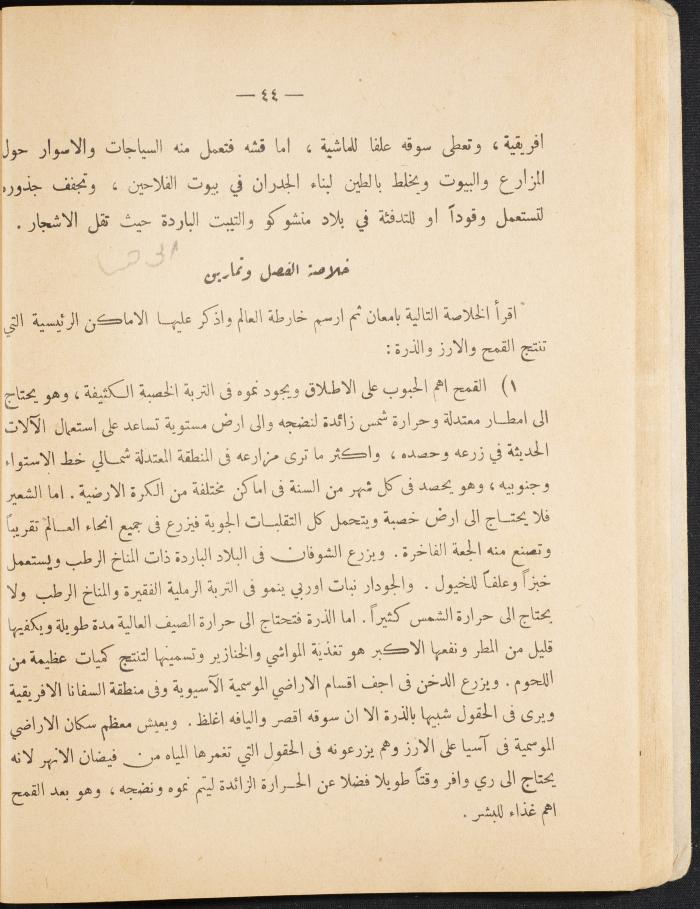 — ٤٤ —
افريقية ، وتعطى سوقه علفا للماشية ، اما قشه فتعمل منه السياجات والاسوار حول
المزارع والبيوت ويخلط بالطين لبناء الجدران في بيوت الفلاحين ، وتجفف جذوره
لتستعمل وقوداً او للتدفئة في بلاد منشوكو والتيبت الباردة حيث تقل الاشجار .
الى هنا
خلاصة الفصل وتمارين
اقرأ الخلاصة التالية بامعان ثم ارسم خارطة العالم واذكر عليها الاماكن الرئيسية التي
تنتج القمح والارز والذرة :
١) القمح اهم الحبوب على الاطلاق ويجود نموه فى التربة الخصبة الكثيفة ، وهو يحتاج
الى امطار معتدلة وحرارة شمس زائدة لنضجه والى ارض مستوية تساعد على استعمال الآلات
الحديثة في زرعه وحصده ، واكثر ما ترى مزارعه فى المنطقة المعتدلة شمالي خط الاستواء
وجنوبيه ، وهو يحصد فى كل شهر من السنة فى اماكن مختلفة من الكرة الارضية . اما الشعير
فلا يحتاج الى ارض خصبة ويتحمل كل التقلبات الجوية فيزرع فى جميع انحاء العالم تقريباً
وتصنع منه الجعة الفاخرة . ويزرع الشوفان فى البلاد الباردة ذات المناخ الرطب ويستعمل
خبزاً وعلفاً للخيول . والجودار نبات اوربي ينمو فى التربة الرملية الفقيرة والمناخ الرطب ولا
يحتاج الى حرارة الشمس كثيراً . اما الذرة فتحتاج الى حرارة الصيف العالية مدة طويلة ويكفيها
قليل من المطر ونفعها الاكبر هو تغذية المواشي والخنازير وتسمينها لتنتج كميات عظيمة من
اللحوم . ويزرع الدخن فى اجف اقسام الاراضي الموسمية الآسيوية وفى منطقة السفانا الافريقية
ويرى فى الحقول شبيها بالذرة الا ان سوقه اقصر واليافه اغلظ . ويعيش معظم سكان الاراضي
الموسمية فى آسيا على الارز وهم يزرعونه فى الحقول التي تغمرها المياه من فيضان الانهر لانه
يحتاج الى ري وافر وقتاً طويلا فضلا عن الحرارة الزائدة ليتم نموه ونضجه ، وهو بعد القمح
اهم غذاء للبشر .